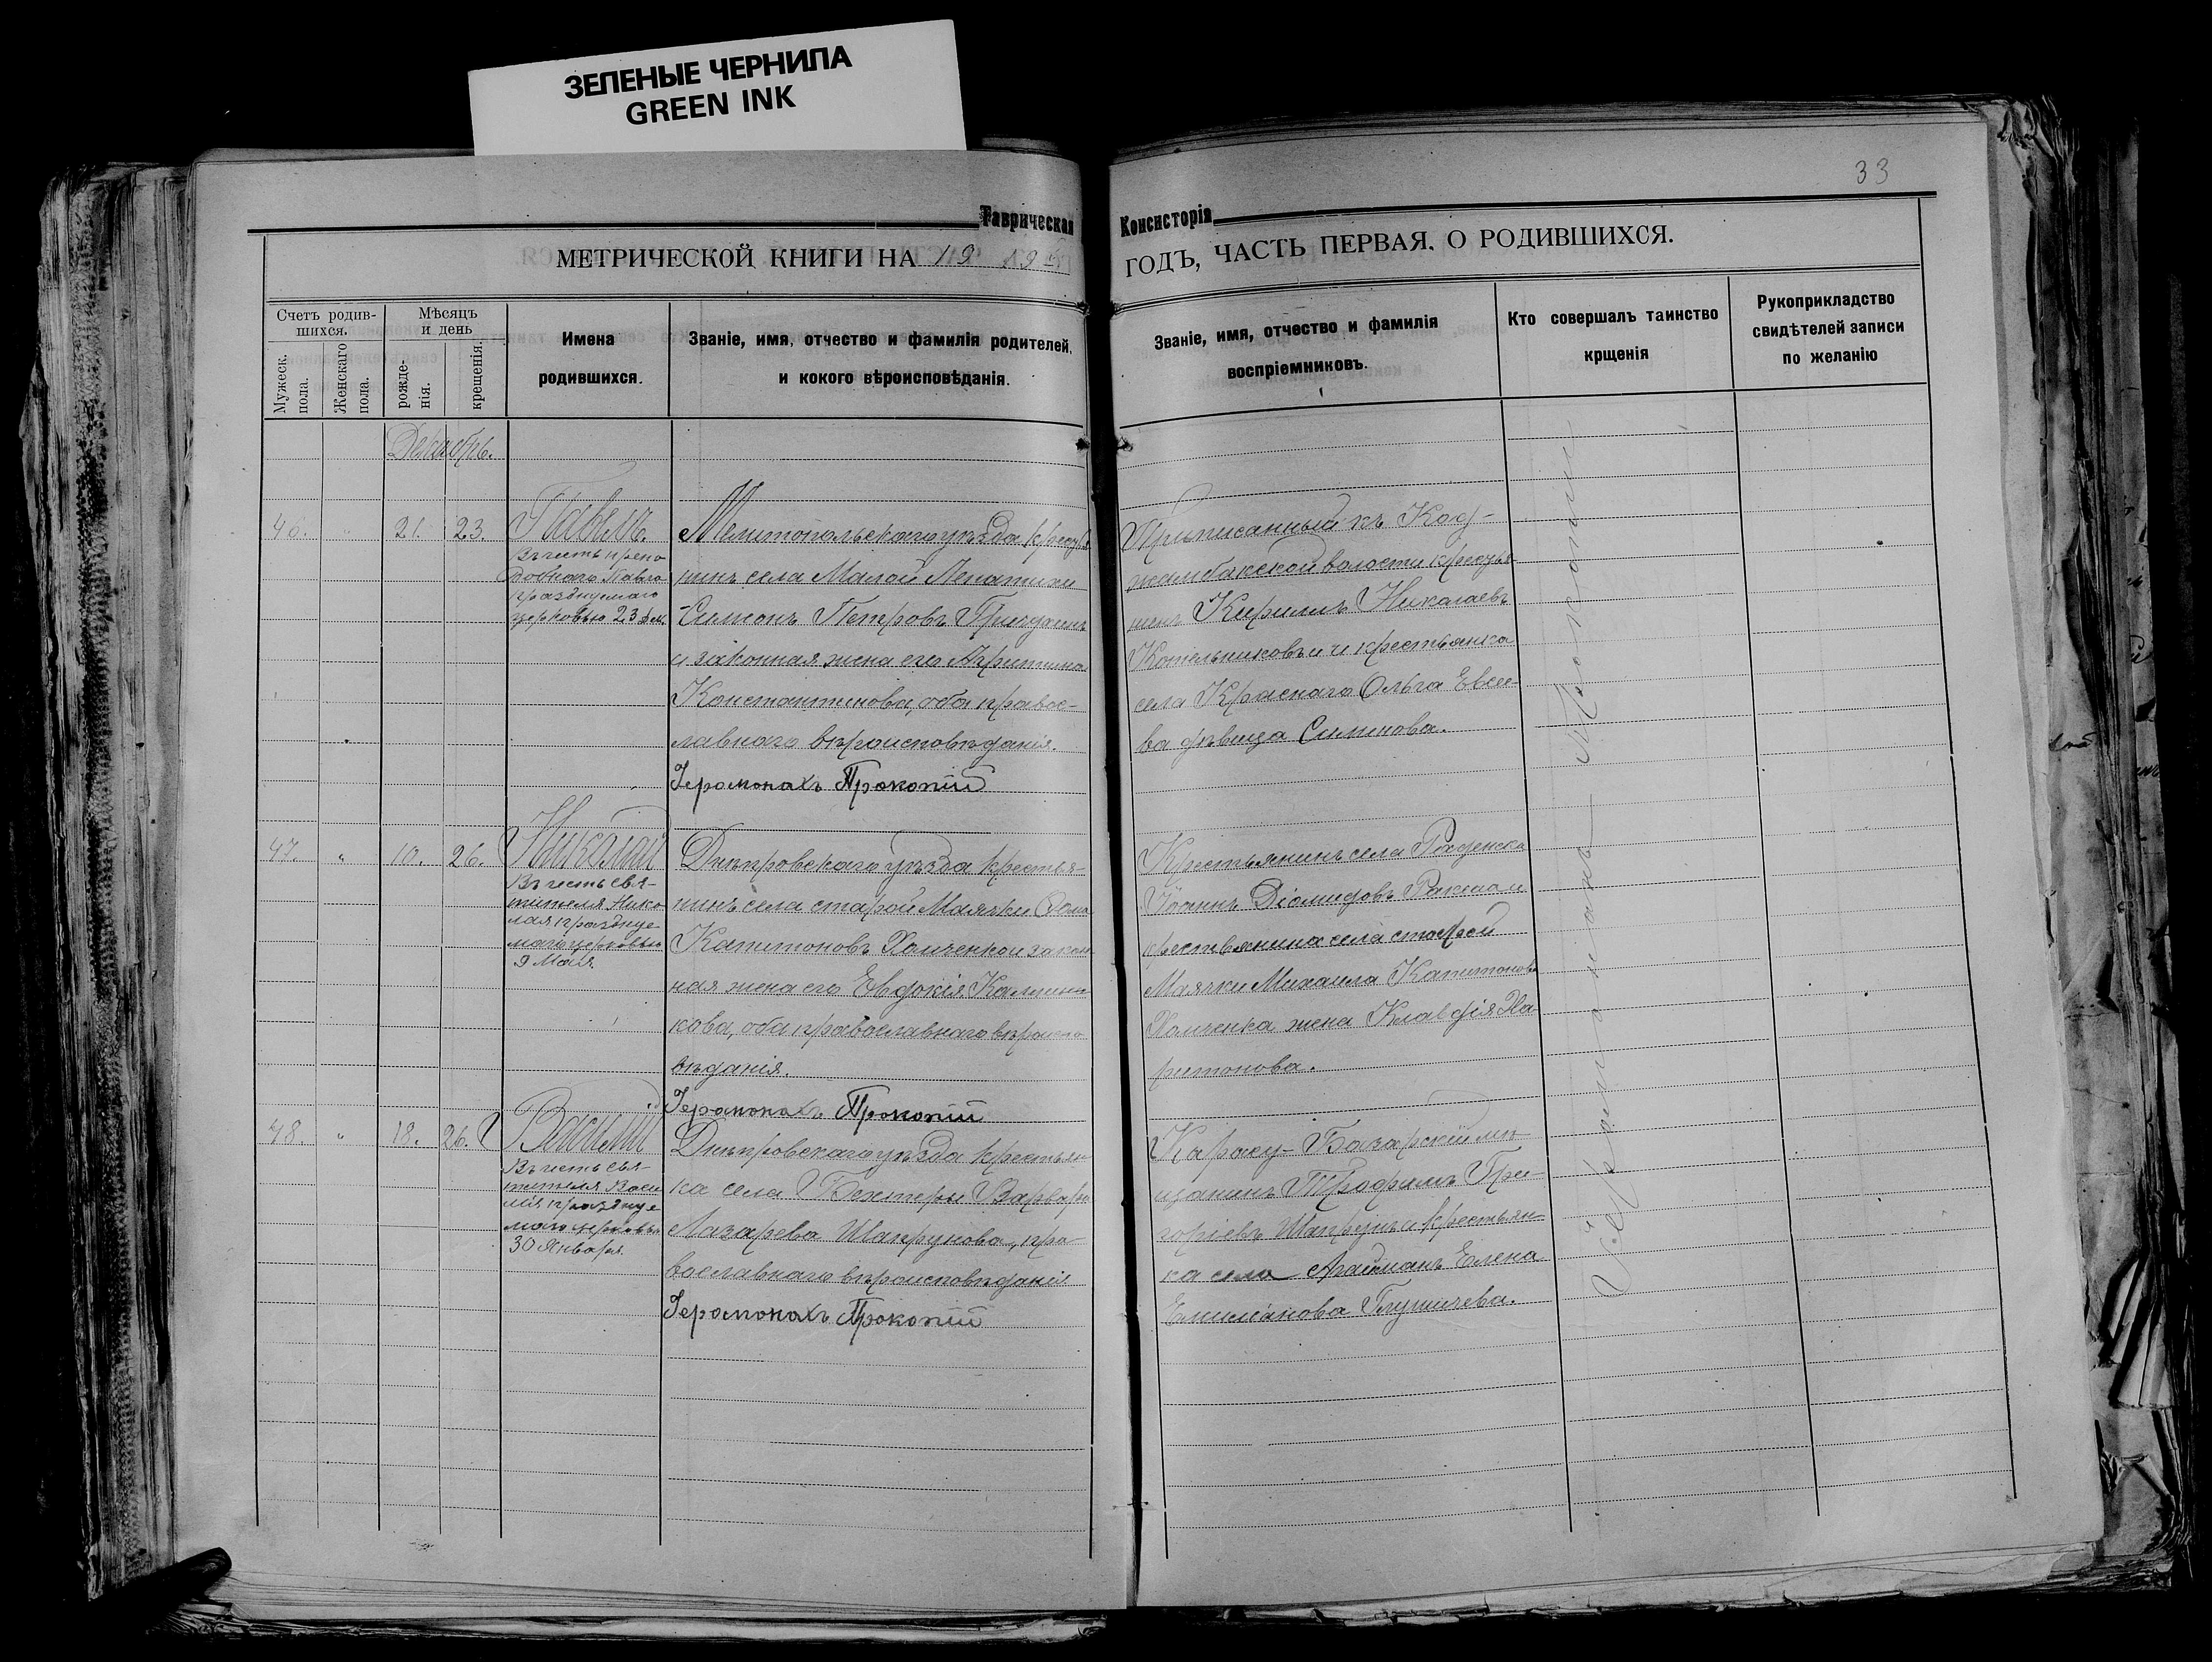 ЗЕЛЕНЫЕ ЧЕРНИЛА
GREEN INK
33
Таврическая
Консисторія
МЕТРИЧЕСКОЙ КНИГИ НА 1919
ГОДЪ, ЧАСТЬ ПЕРВАЯ. О РОДИВШИХСЯ.
Счетъ родив-
шихся.
Мужеск. пола.
Женскаго пола.
Мѣсяцъ
и день
рожде-
нія.
крещенія.
Имена
родившихся.
Званіе, имя, отчество и фамилія родителей,
и кокого вѣроисповѣданія.
Званіе, имя, отчество и фамилія
воспріемниковъ.
Кто совершалъ таинство
крщенія
Рукоприкладство
свидѣтелей записи
по желанію
Декабрь.
46. " 21. 23.
Павелъ.
Въ честь препо
добнаго Павла
празднуемаго
церковью 23 дек.
Мелитопольскаго уѣзда кресть
нинъ села Малой Лепатихи
Симонъ Петровъ
и законная жена его
Константинова, оба правос-
лавнаго вѣроисповѣданія.
Іеромонахъ Прокопій
Приписанный къ
волости крестья
нинъ Кириллъ Николаевъ
Котельниковъ и крестьянка
села Краснаго Ольга Евсе-
ва дѣвица
47. " 10. 26.
Николай
Въ честь свя-
тителя Нико
лая праздную
маго церковью
9 Мая.
Днѣпровскаго уѣзда крестья-
нинъ села старой Маячки Ѳома
Капитоновъ Халченко и закон
ная жена его Евдокія
кова, оба православнаго вѣроиспо
вѣданія.
Іеромонахъ Прокопій
Крестьянинъ села
Іоаннъ Діомидовъ и
крестьянина села старой
Маячки Михаила Капитонова
Халченка жена Клавдія Ха-
ритонова.
48. " 18. 26.
Василій
Въ честь свя-
тителя Васи
лія праздную
маго церковью
30 Января.
Днѣпровскаго уѣзда крестьян-
ка села Бехтеры Варвара
Лазарева Шапрунова, пра-
вославнаго вѣроисповѣданія
Іеромонахъ Прокопій
Карасу-Базарскій мѣ-
щанинъ Трофимъ Гри-
горіевъ Шапрунъ и крестьян-
ка села Агайманъ Елена
Емиліанова
Іеромонахъ Прокопій